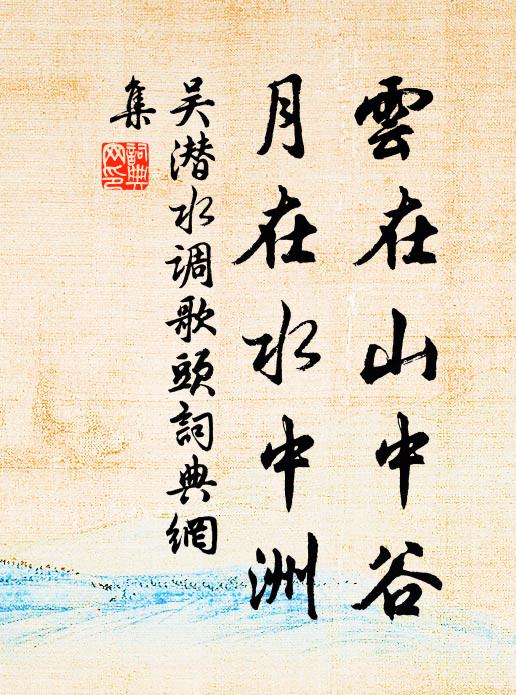 雲在山中谷
月在水中洲
吴潜水调歌頭詞典網
集
詞典
网印